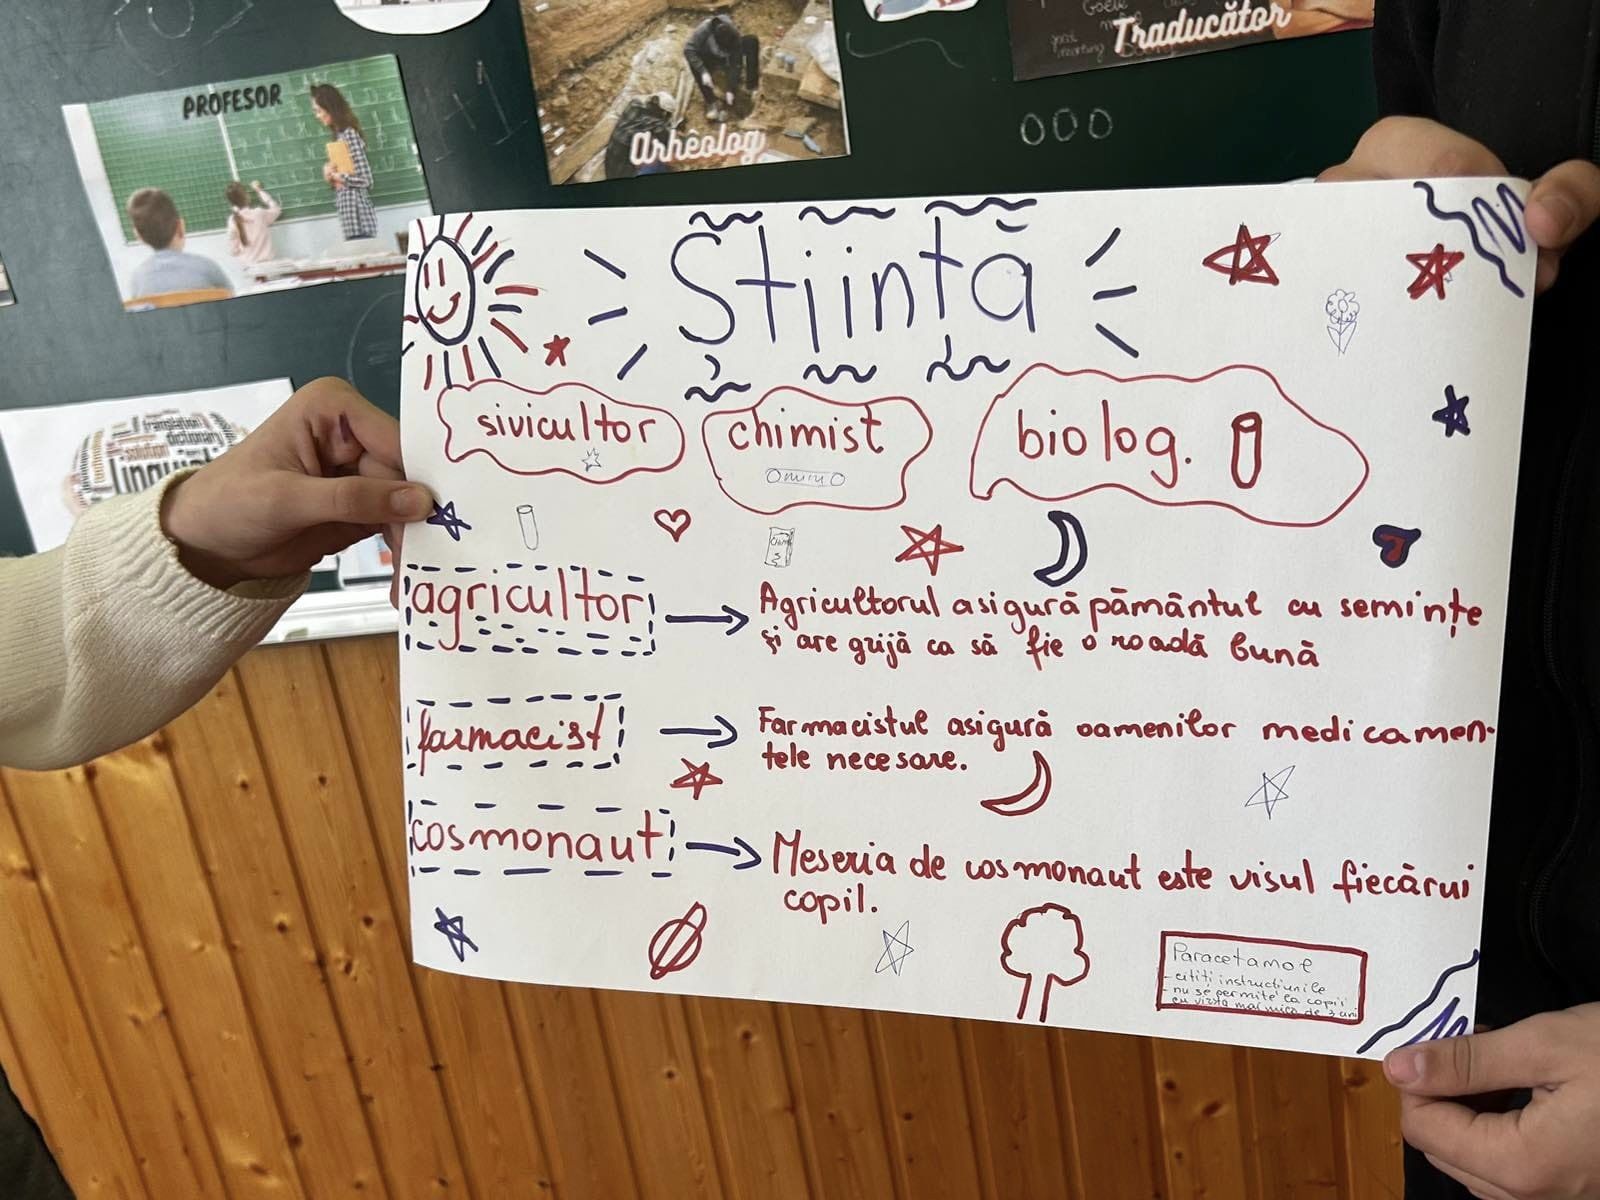 PROFESOR
Arhêolog
Traducător
translation
dictionary
solution
Știință
sivicultor
chimist
biolog.
agricultor
Agricultorul asigură pământul cu semințe
și are grijă ca să fie o roadă bună
farmacist
Farmacistul asigură oamenilor medicamen-
tele necesare.
cosmonaut
Meseria de cosmonaut este visul fiecărui
copil.
Paracetamol
- citiți instrucțiunile
- nu se permite la copii
cu vîrsta mai mica de 3 ani